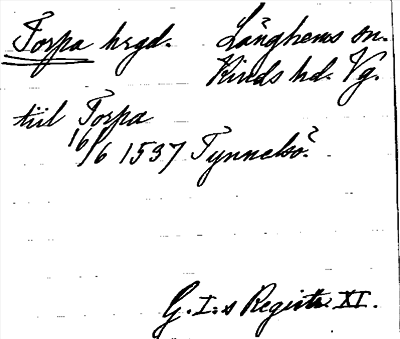 Torpa hrgd. Länghems sn.
Kinds hd. Vg.
till Torpa
16/6 1537 Tynnelsö.
G. I:s Registr. XI.